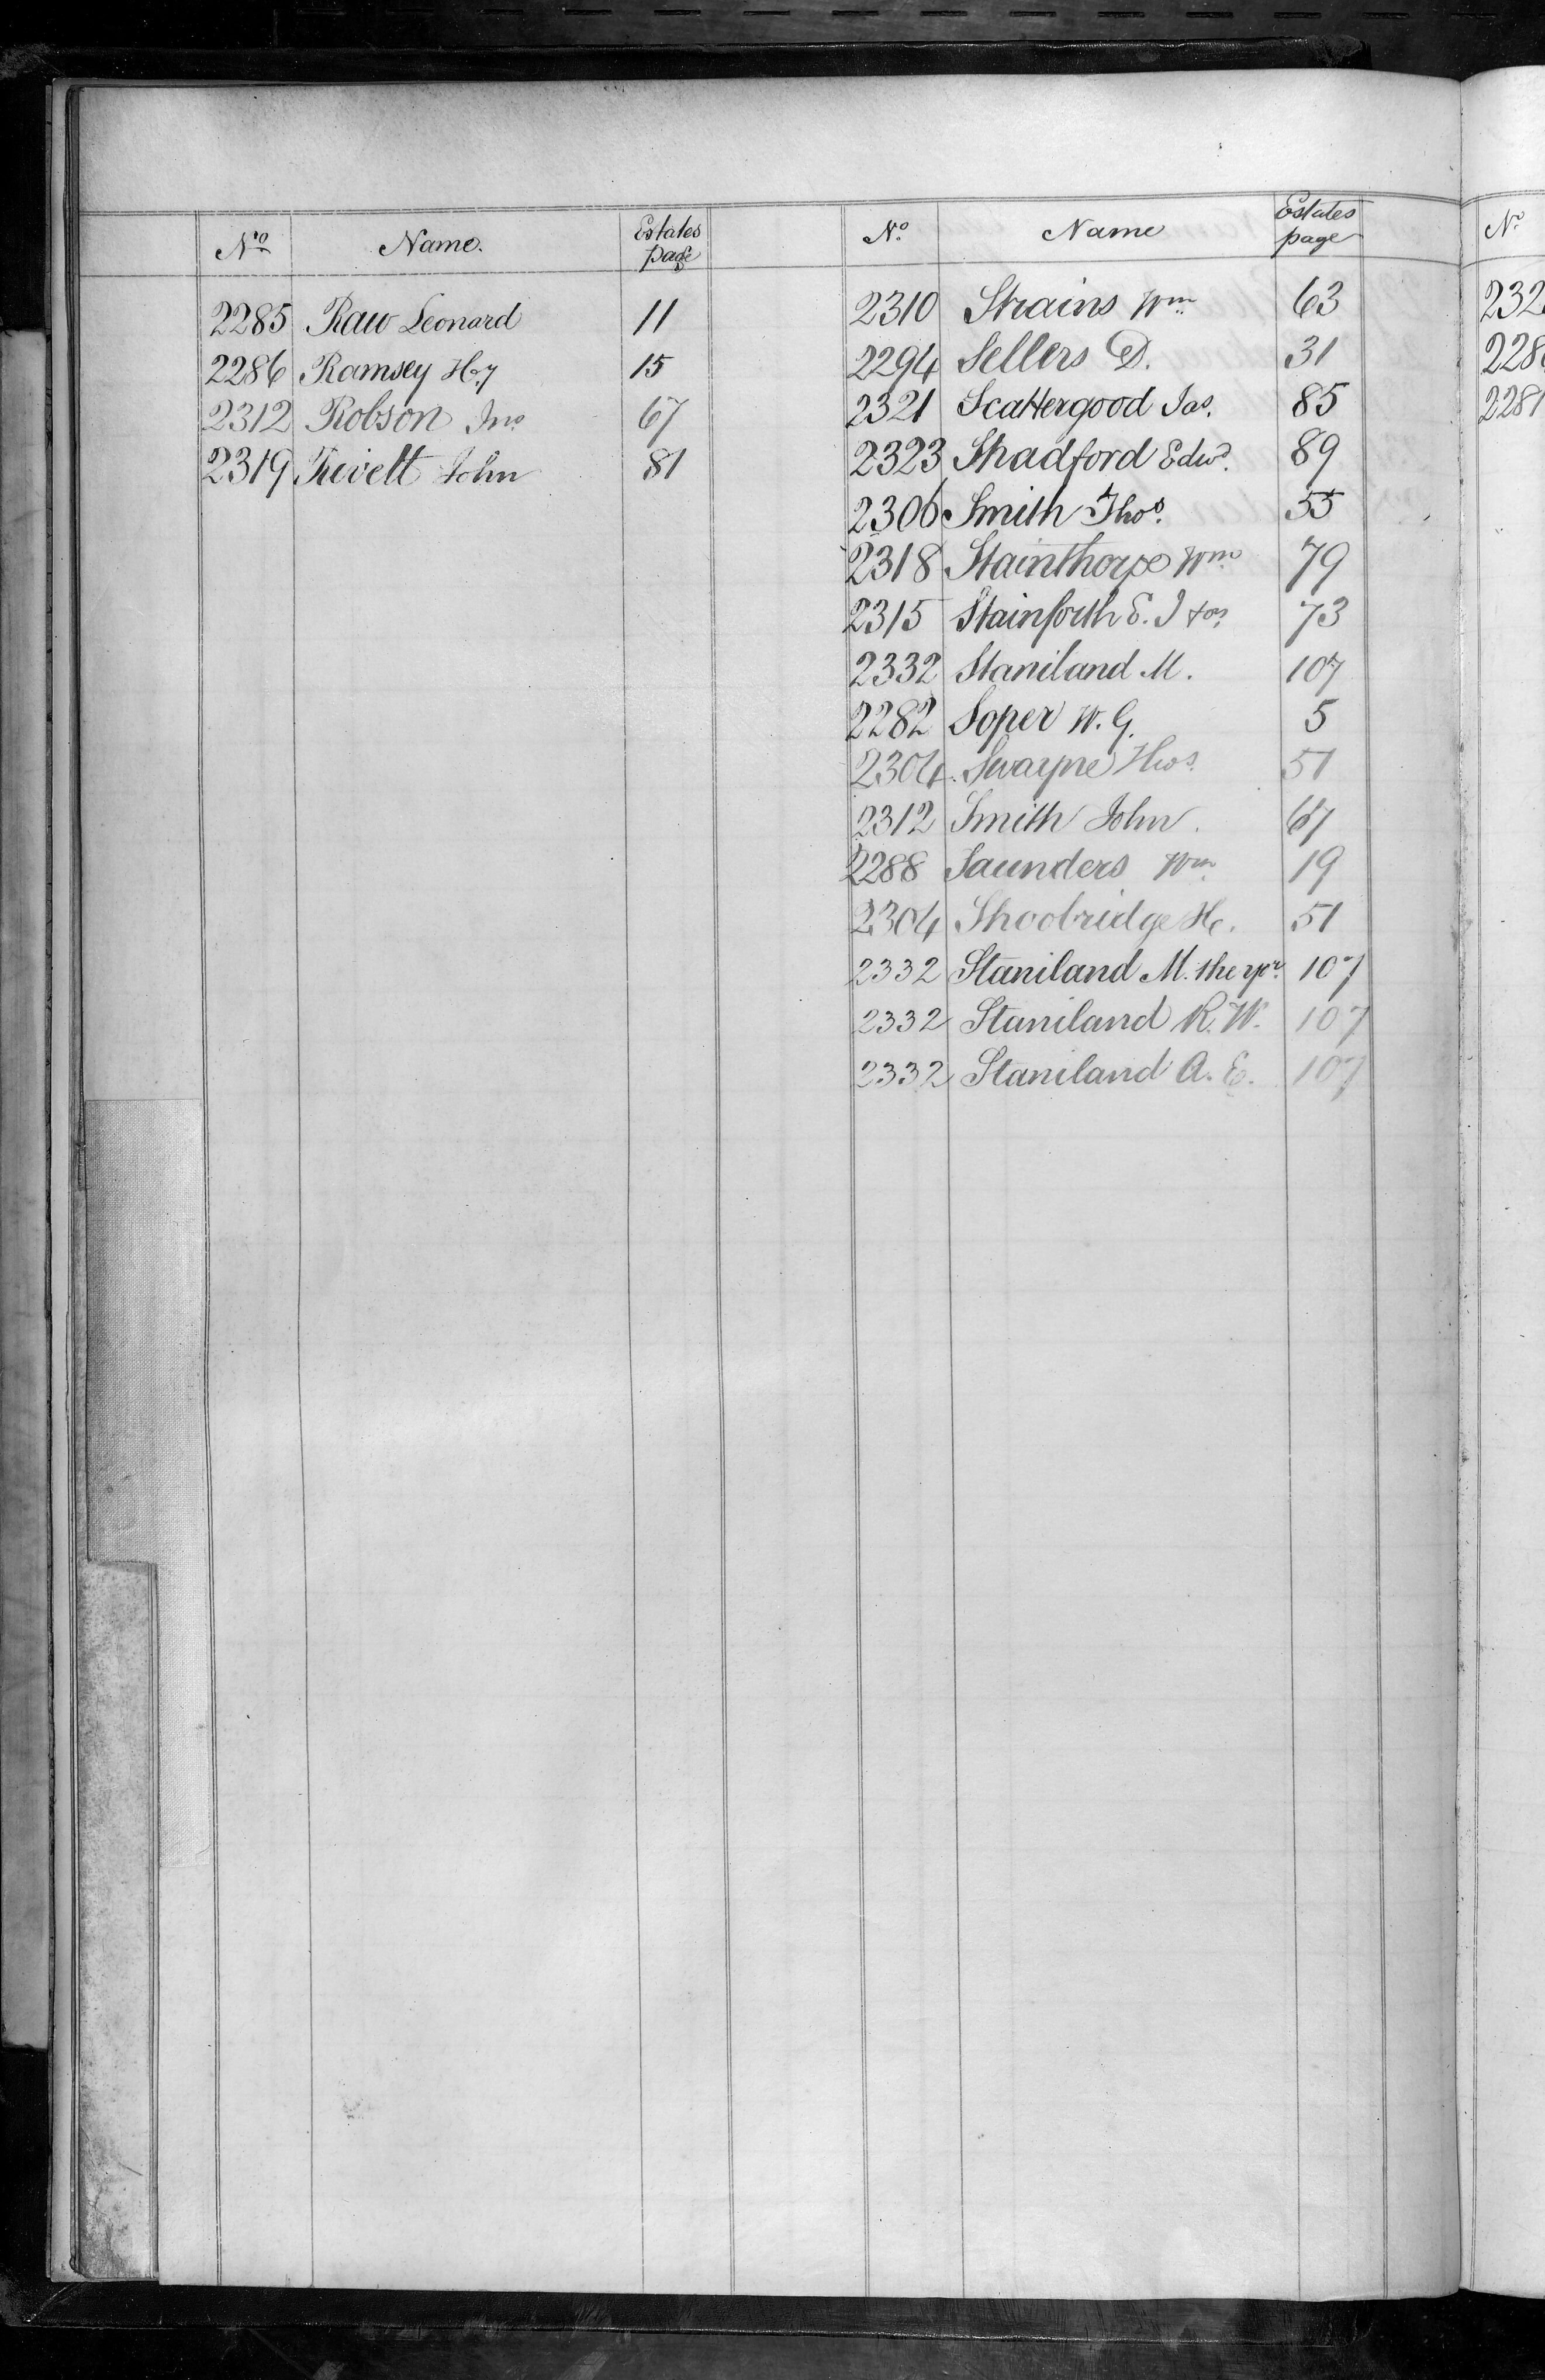 No Name. Estates page
2285 Raw Leonard 11
2286 Ramsey Hy 15
2312 Robson Jno 67
2319 Rivett John 81
No. Name Estates page
2310 Strains Wm 63
2294 Sellers D. 31
2321 Scattergood Jas. 85
2323 Shadford Edwd. 89
2306 Smith Thos. 55
2318 Stainthorpe Wm 79
2315 Stainforth E. J & ors 73
2332 Staniland M. 107
2282 Soper W. G. 5
2304 Swayne Thos. 51
2312 Smith John. 67
2288 Saunders Wm 19
2304 Shoobridge H. 51
2332 Staniland M. the yr. 107
2332 Staniland R. W. 107
2332 Staniland A. E. 107
No.
232
228
2281